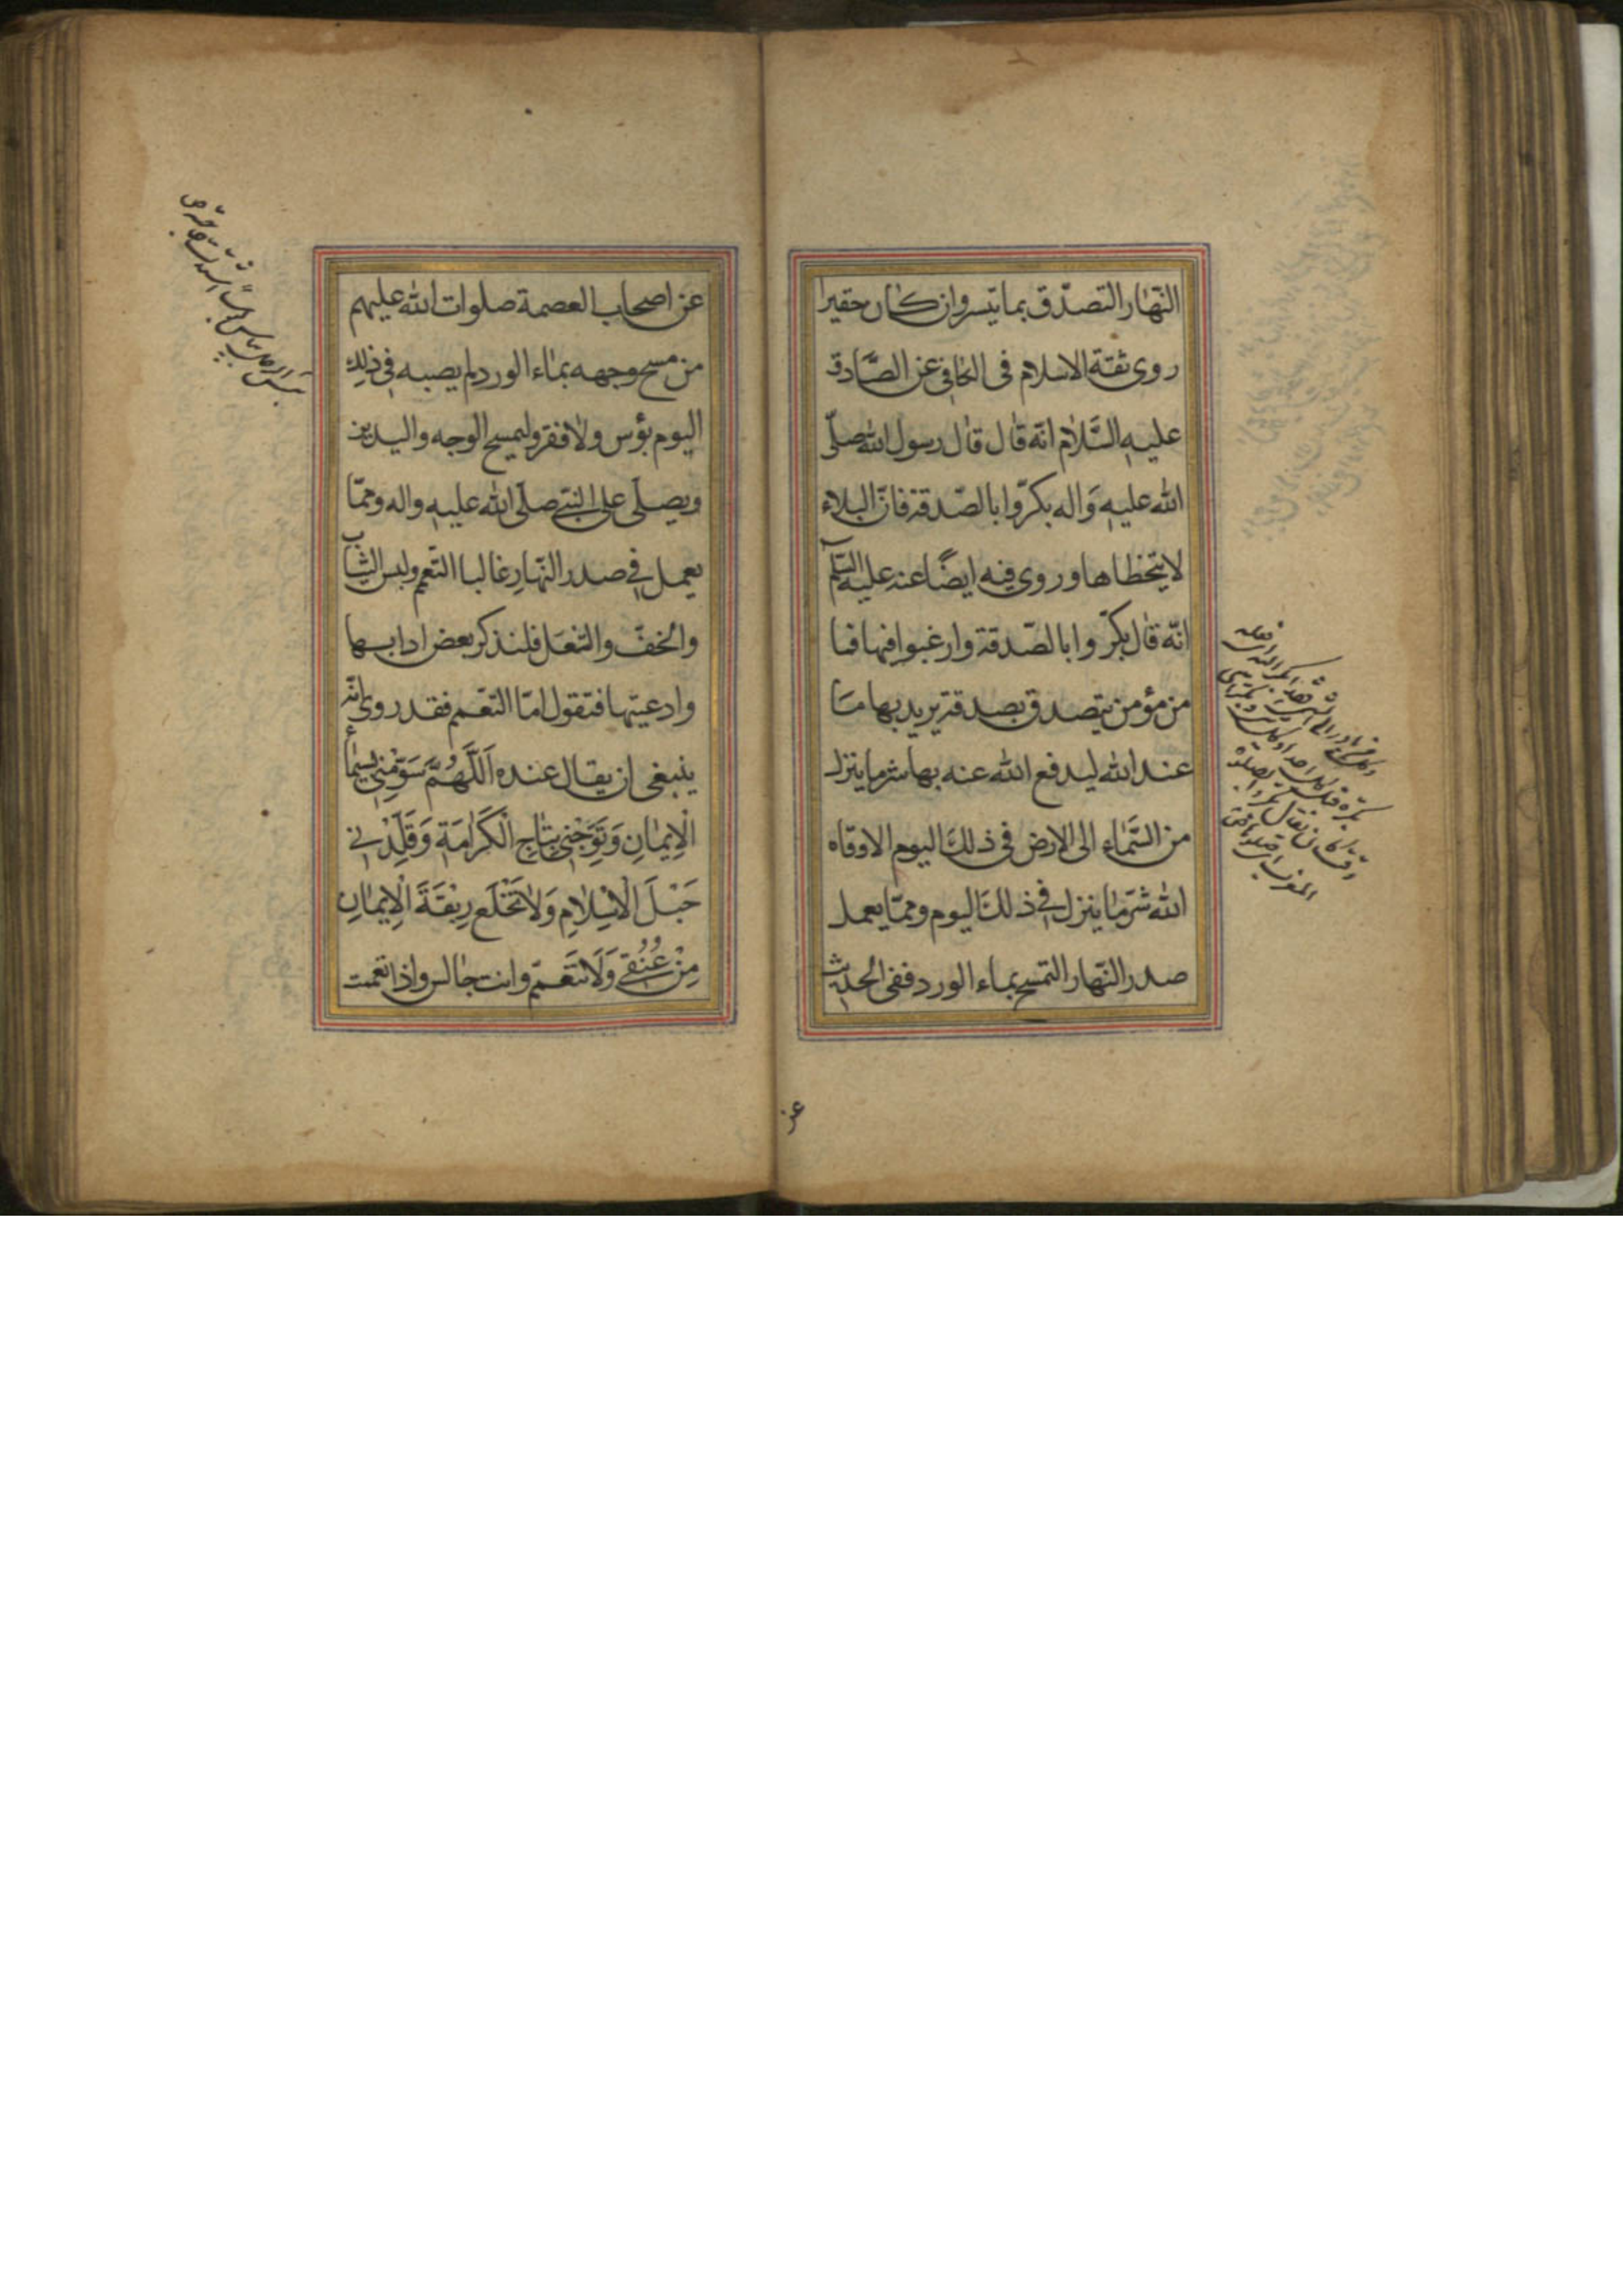 النّهار التصدّق بما تيسر وان كان حقيرا
روى ثقة الاسلام فى الكافى عن الصّادق
عليه السَّلام انّه قال قال رسول الله صلّى
الله عليه وَاله بكرّوا بالصّدقة فانّ البلاء
لا يتخطاها وروى فيه ايضًا عنه عليه السّلم
انّه قال بكرّوا بالصّدقة وارغبوا فيها فما
من مؤمن يتصدق بصدقة يريد بها ما
عند الله ليدفع الله عنه بها شر ما ينزل
من السَّماء الى الارض فى ذلك اليوم الا وقاه
الله شرّ ما ينزل فى ذلك اليوم وممّا يعمل
صدر النّهار التمسح بماء الورد ففى الحديث
عن
عن اصحاب العصمة صلوات الله عليهم
من مسح وجهه بماء الورد لم يصبه فى ذلك
اليوم بؤس ولا فقر وليمسح الوجه واليدين
ويصلّى على النبىّ صلّى الله عليه واله وممّا
يعمل فى صدر النّهارِ غالبا التعّمم ولبس الثياب
والخفّ والنّعل فلنذكر بعض ادابها
وادعيتها فنقول امّا التعّمم فقد روى انّه
ينبغى ان يقال عنده اَللَّهُمَّ سَوِّمْنِى بِسِيمٰاءِ
الْاِيمٰانِ وَتَوِّجْنِى بِتٰاجِ الْكَرٰامَةِ وَقَلِّدْنِى
حَبْلَ الْاِسْلٰامِ وَلاٰ تَخْلَعْ رِبْقَةَ الْاِيمٰانِ
مِنْ عُنُقِى وَلَا تَتَعَمّم وانت جالس واذا تعممت